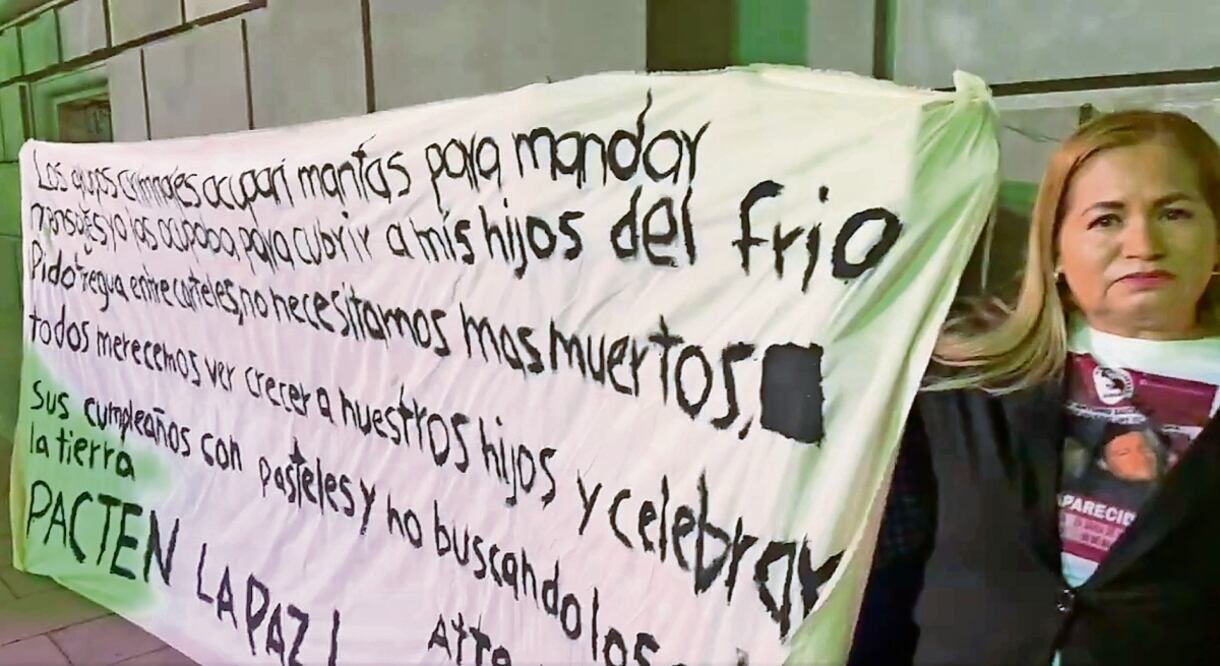 Los grupos criminales ocupan mantas para mandar
mensajes, yo las ocupaba, para cubrir a mis hijos del frio
Pido tregua entre carteles, no necesitamos mas muertos,
todos merecemos ver crecer a nuestros hijos y celebrar
sus cumpleaños con pasteles y no buscandolos
la tierra
PACTEN LA PAZ!
Atte
APARECID